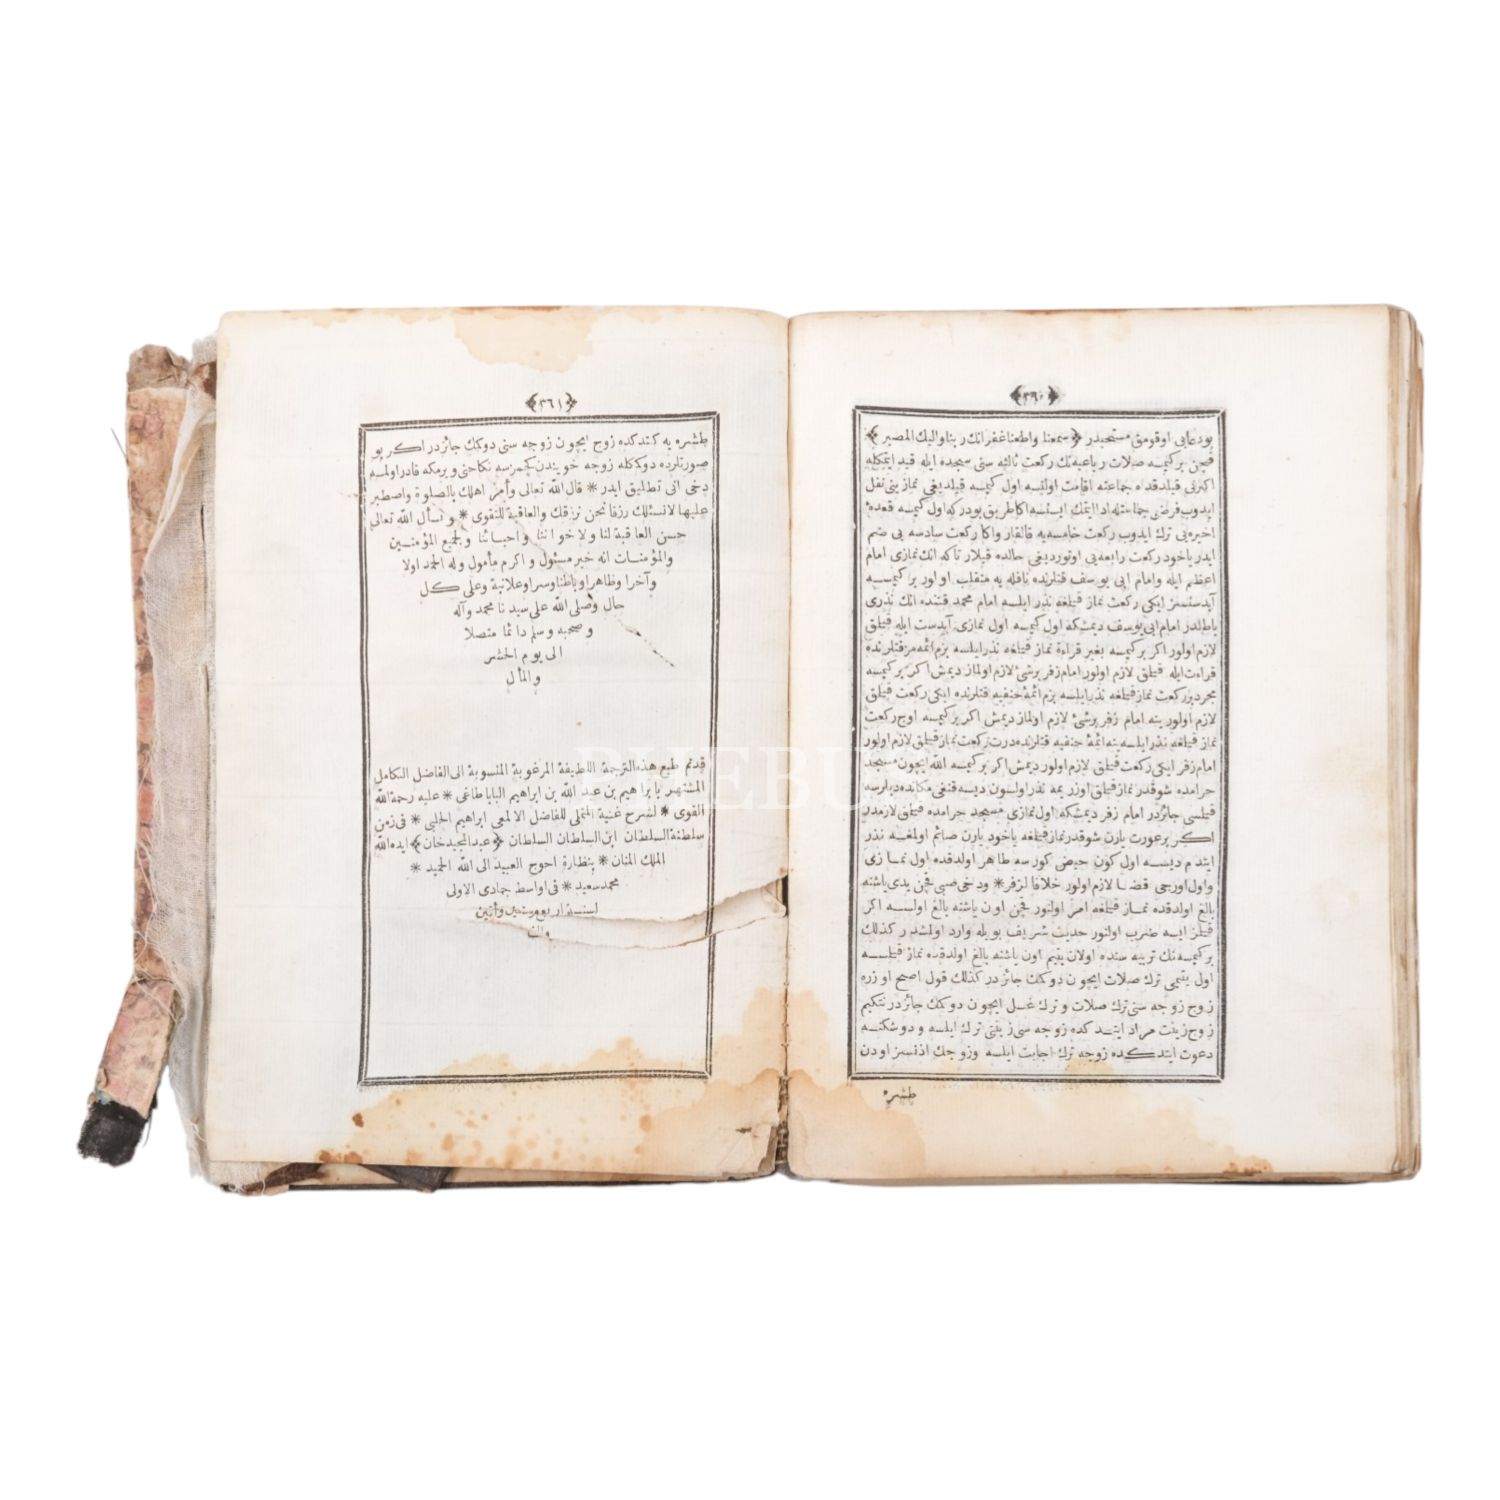 ﴿٣٦٠﴾
بودعايى اوقومق مستحبدر ﴿سمعنا واطعنا غفرانك ربنا واليك المصير﴾
قچن بركيمسه صلات رباعيه نك ركعت ثالثه سنى سجده ايله قيد ايتمكله
اكثرنى قيلدقده جماعته اقامت اولنسه اول كيمسه قيلديغى نمازينى نفل
ايدوب فرضى جماعتله ادا ايتمك ايستسه اكا طريق بودركه اول كيمسه قعدهٔ
اخيره يى ترك ايدوب ركعت خامسه يه قالقار واكا ركعت سادسه يى ضم
ايدر ياخود ركعت رابعه يى اوتورديغى حالده قيلار تاكه انك نمازى امام
اعظم ايله وامام ابى يوسف قتلرنده نافله يه منقلب اولور بركيمسه
آبدستسز ايكى ركعت نماز قيلغه نذر ايلسه امام محمد قتنده انك نذرى
باطلدر امام ابى يوسف ديمشكه اول كيمسه اول نمازى آبدست ايله قيلق
لازم اولور اكر بركيمسه بغير قراءة نماز قيلغه نذر ايلسه بزم ائمه مز قتلرنده
قراءت ايله قيلق لازم اولور امام زفر برشئ لازم اولماز ديمش اكر بركيمسه
مجرد بر ركعت نماز قيلغه نذر ايلسه بزم ائمهٔ حنفيه قتلرنده ايكى ركعت قيلق
لازم اولور ينه امام زفر برشئ لازم اولماز ديمش اكر بركيمسه اوچ ركعت
نماز قيلغه نذر ايلسه ينه ائمهٔ حنفيه قتلرنده درت ركعت نماز قيلق لازم اولور
امام زفر ايكى ركعت قيلق لازم اولور ديمش اكر بركيمسه الله ايچون مسجد
حرامده شوقدر نماز قيلق اوزريمه نذر اولسون ديسه قنغى مكانده ديلرسه
قيلسى جائزدر امام زفر ديمشكه اول نمازى مسجد حرامده قيلق لازمدر
اكر برعورت يارن شوقدر نماز قيلغه ياخود يارن صائم اولمغه نذر
ايتدم ديسه اول كون حيض كورسه طاهر اولدقده اول نمازى
واول اورجى قضا لازم اولور خلافا لزفر * ودخى صبى قچن يدى ياشنه
بالغ اولدقده نماز قيلغه امر اولنور قچن اون ياشنه بالغ اولسه اكر
قيلمز ايسه ضرب اولنور حديث شريف بويله وارد اولمشدر كذلك
بركيمسه نك تربيه سنده اولان يتيم اون ياشنه بالغ اولدقده نماز قيلمسه
اول يتيمى ترك صلات ايچون دوكمك جائزدر كذلك قول اصح اوزره
زوج زوجه سنى ترك صلات و ترك غسل ايچون دوكمك جائزدر نتكيم
زوج زينت مراد ايتدكده زوجه سى زينتى ترك ايلسه و دوشكنه
دعوت ايتدكده زوجه ترك اجابت ايلسه وزوجك اذنسز اودن
طشره
﴿٣٦١﴾
طشره يه كتدكده زوج ايچون زوجه سنى دوكمك جائزدر اكر بو
صورتلرده دوكمكله زوجه خويندن كچمزسه نكاحنى ويرمكه قادر اولمسه
دخى انى تطليق ايدر * قال الله تعالى وأمر اهلك بالصلوة واصطبر
عليها لا نسئلك رزقا نحن نرزقك والعاقبة للتقوى * ونسأل الله تعالى
حسن العاقبة لنا ولاخواننا واحبائنا ولجميع المؤمنين
والمؤمنات انه خير مسئول واكرم مأمول وله الحمد اولا
وآخرا وظاهرا وباطنا وسرا وعلانية وعلى كل
حال وصلى الله على سيدنا محمد وآله
وصحبه وسلم دائما متصلا
الى يوم الحشر
والمأل
قدتم طبع هذه الترجمة اللطيفة المرغوبة المنسوبة الى الفاضل الكامل
المشتهر بابراهيم بن عبد الله بن ابراهيم الباباطاغى * عليه رحمة الله
القوى * لشرح غنية المتملى للفاضل الالمعى ابراهيم الحلبى * فى زمن
سلطنة السلطان ابن السلطان السلطان ﴿عبد المجيد خان﴾ ايده الله
الملك المنان * بنظارة احوج العبيد الى الله الحميد *
محمد سعيد * فى اواسط جمادى الاولى
لسنة اربع وستين ومأتين
والف